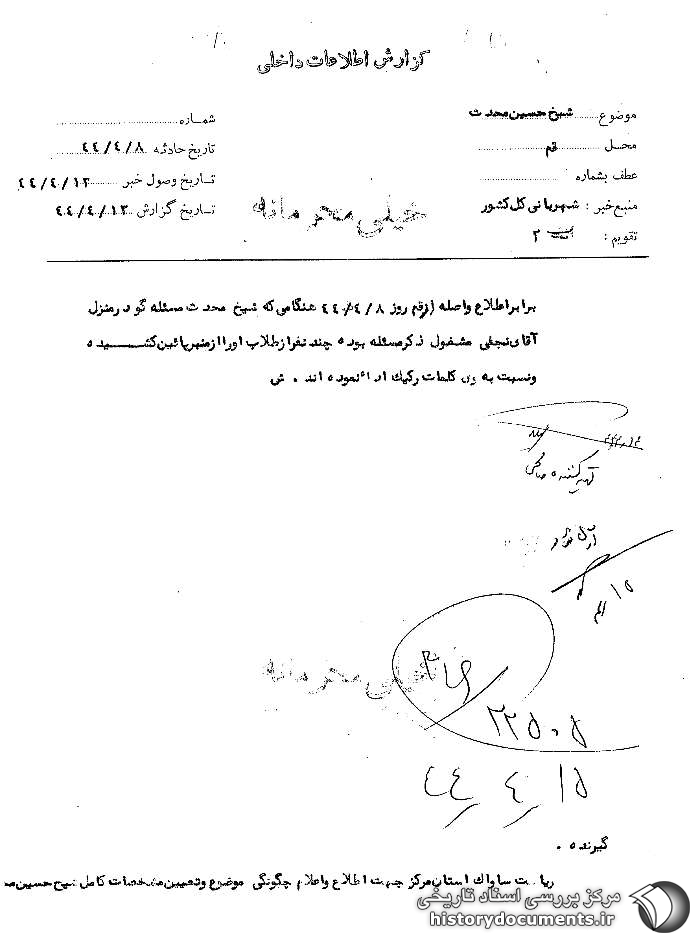 گزارش اطلاعات داخلی
موضوع شیخ حسین محدث
شماره
محل قم
تاریخ حادثه ۴۴/۴/۸
عطف بشماره
تاریخ وصول خبر ۴۴/۴/۱۲
منبع خبر : شهربانی کل کشور
تاریخ گزارش ۴۴/۴/۱۳
تقویم : الف ۲
خیلی محرمانه
برابر اطلاع واصله از قم روز ۴۴/۴/۸ هنگامی که شیخ محدث مسئله گو در منزل
آقای نجفی مشغول ذکر مسئله بوده چند نفر از طلاب او را از منبر پائین کشیده
و نسبت به وی کلمات رکیک ادا نموده اند . ش
تهیه کننده
۱۵
خیلی محرمانه
۲۲۵۰۵
۴۴/۴/۱۵
گیرنده .
ریاست ساواک استان مرکز جهت اطلاع و اعلام چگونگی موضوع و تعیین مشخصات کامل شیخ حسین
مرکز بررسی اسناد تاریخی
historydocuments.ir